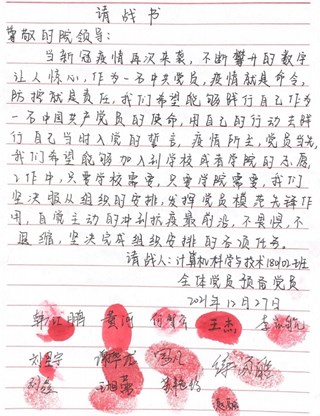 请战书
尊敬的院领导:
当新冠疫情再次来袭,不断攀升的数字
让人惊心,作为一名中共党员,疫情就是命令,
防控就是责任,我们希望能够践行自己作为
一名中国共产党员的使命,用自己的行动去践
行自己当时入党的誓言,疫情所至,党员当先,
我们希望能够加入到学校或者学院的志愿
工作中,只要学校需要,只要学院需要,我们
坚决服从组织的安排,发挥党员模范先锋作
用,自觉主动的冲到抗疫最前沿,不畏惧,不
退缩,坚决完成组织安排的各项任务。
请战人:计算机科学与技术180102班
全体党员预备党员
2021年12月27日
王杰